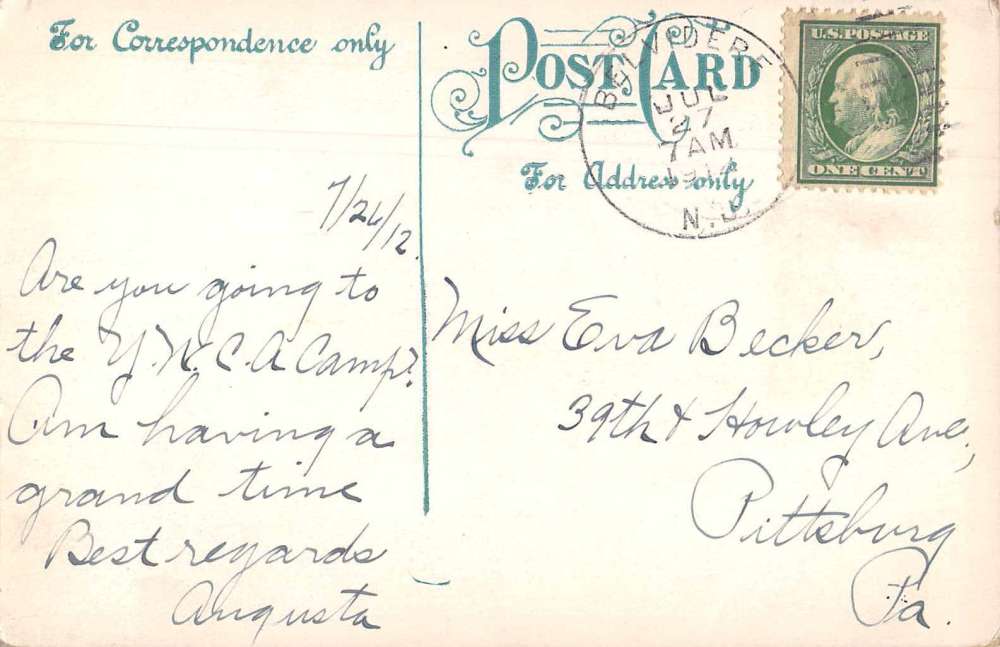 For Correspondence only
POST CARD
For Address only
BELVIDERE
JUL
27
7 AM
1912
N.J.
U.S. POSTAGE
ONE CENT
7/26/12
Are you going to
the Y.W.C.A Camp?
Am having a
grand time
Best regards
Augusta
Miss Eva Becker,
39th & Howley Ave,
Pittsburg
Pa.